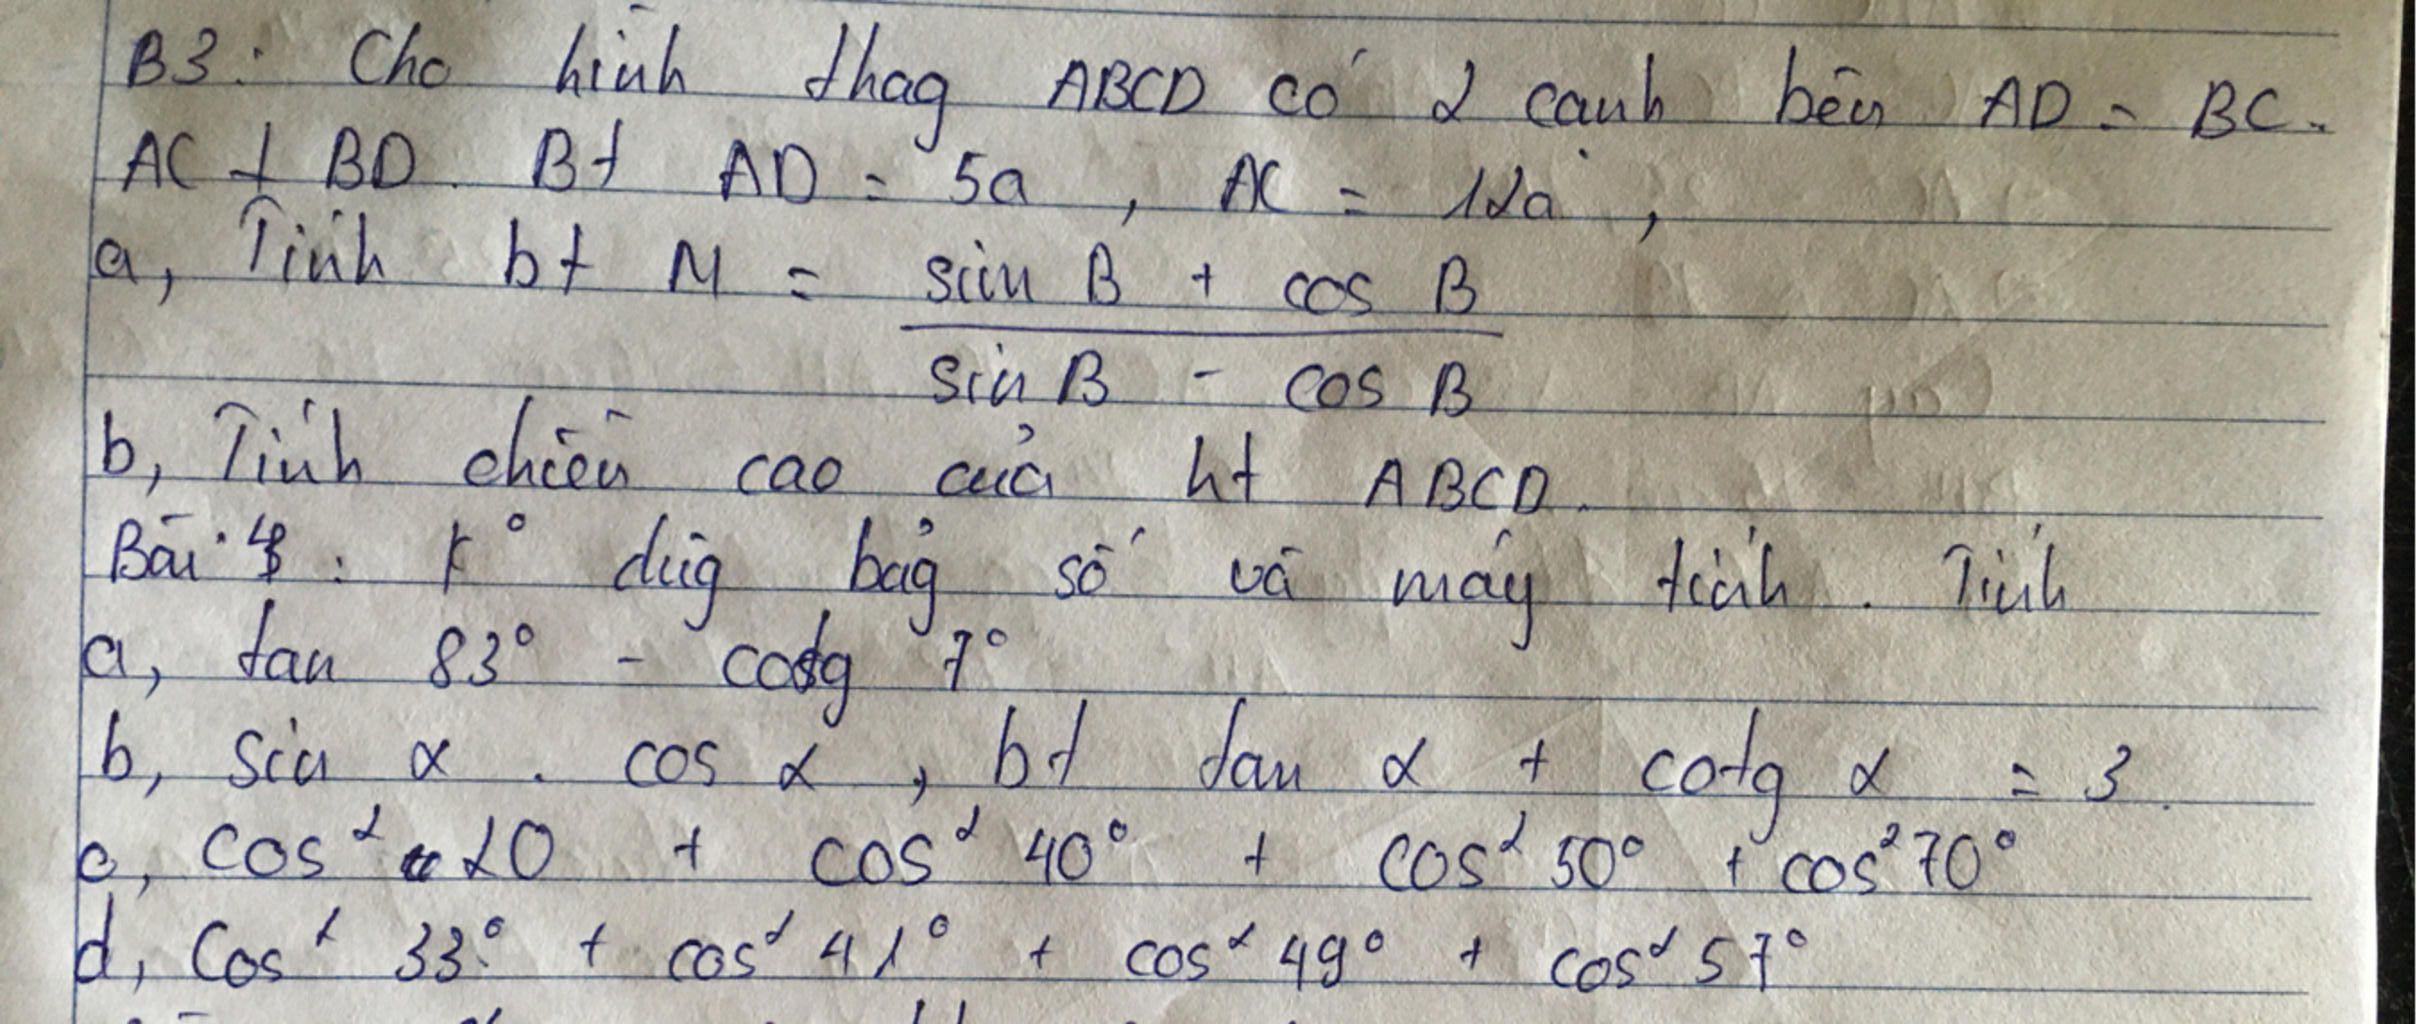 B3: Cho hình thag ABCD có 2 cạnh bên AD = BC.
AC ⊥ BD. Bt AD = 5a, AC = 12a,
a, Tính bt M = sin B + cos B
sin B - cos B
b, Tính chiều cao của ht ABCD.
Bài 4: k° dùg bảg số và máy tính. Tính
a, tan 83° - cotg 7°
b, sin α . cos α, bt tan α + cotg α = 3.
c, cos² 20 + cos² 40° + cos² 50° + cos² 70°
d, Cos² 33° + cos² 41° + cos² 49° + cos² 57°